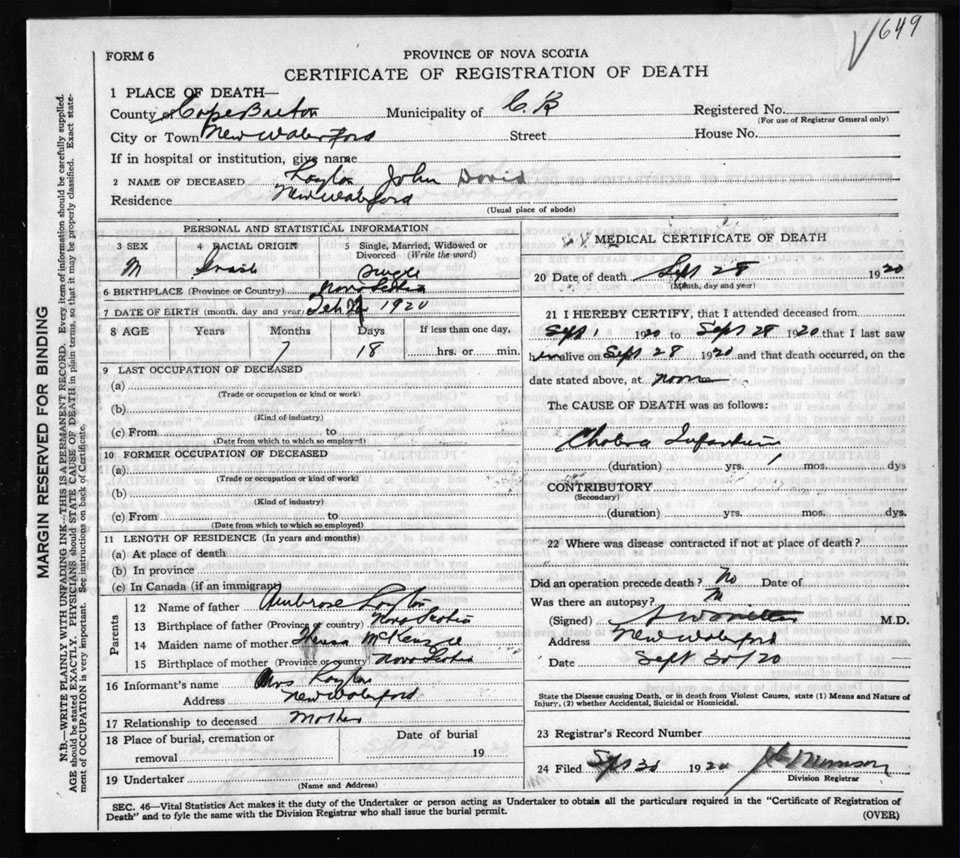 649
FORM 6
PROVINCE OF NOVA SCOTIA
CERTIFICATE OF REGISTRATION OF DEATH
1 PLACE OF DEATH—
County of Cape Breton Municipality of C. B Registered No.
(For use of Registrar General only)
City or Town New Waterford Street House No.
If in hospital or institution, give name
2 NAME OF DECEASED John David
Residence New Waterford
(Usual place of abode)
PERSONAL AND STATISTICAL INFORMATION
3 SEX 4 RACIAL ORIGIN 5 Single, Married, Widowed or Divorced (Write the word)
M Irish Single
6 BIRTHPLACE (Province or Country) Nova Scotia
7 DATE OF BIRTH (month, day and year) Feb 1920
8 AGE Years Months Days If less than one day,
7 18 hrs. or min.
9 LAST OCCUPATION OF DECEASED
(a)
(Trade or occupation or kind or work)
(b)
(Kind of industry)
(c) From to
(Date from which to which so employed)
10 FORMER OCCUPATION OF DECEASED
(a)
(Trade or occupation or kind of work)
(b)
(Kind of industry)
(c) From to
(Date from which to which so employed)
11 LENGTH OF RESIDENCE (In years and months)
(a) At place of death
(b) In province
(c) In Canada (if an immigrant)
Parents
12 Name of father Ambrose
13 Birthplace of father (Province or country) Nova Scotia
14 Maiden name of mother McKenzie
15 Birthplace of mother (Province or country) Nova Scotia
16 Informant's name Mrs
Address New Waterford
17 Relationship to deceased Mother
18 Place of burial, cremation or removal Date of burial
19
19 Undertaker
(Name and Address)
MEDICAL CERTIFICATE OF DEATH
20 Date of death Sept 28 1920
(Month, day and year)
21 I HEREBY CERTIFY, that I attended deceased from
Sept 1 1920 to Sept 28 1920 that I last saw
him alive on Sept 28 1920 and that death occurred, on the
date stated above, at noon
The CAUSE OF DEATH was as follows:
Cholera Infantum
(duration) yrs. 1 mos. dys
CONTRIBUTORY
(Secondary)
(duration) yrs. mos. dys.
22 Where was disease contracted if not at place of death?
Did an operation precede death? No Date of
Was there an autopsy?
(Signed) M.D.
Address New Waterford
Date Sept 30/20
State the Disease causing Death, or in death from Violent Causes, state (1) Means and Nature of
Injury, (2) whether Accidental, Suicidal or Homicidal.
23 Registrar's Record Number
24 Filed Sept 30 1920
Division Registrar
SEC. 46—Vital Statistics Act makes it the duty of the Undertaker or person acting as Undertaker to obtain all the particulars required in the "Certificate of Registration of
Death" and to fyle the same with the Division Registrar who shall issue the burial permit.
(OVER)
MARGIN RESERVED FOR BINDING
N.B.—WRITE PLAINLY WITH UNFADING INK—THIS IS A PERMANENT RECORD. Every item of information should be carefully supplied.
AGE should be stated EXACTLY. PHYSICIANS should STATE CAUSE OF DEATH in plain terms, so that it may be properly classified. Exact state-
ment of OCCUPATION is very important. See instructions on back of Certificate.